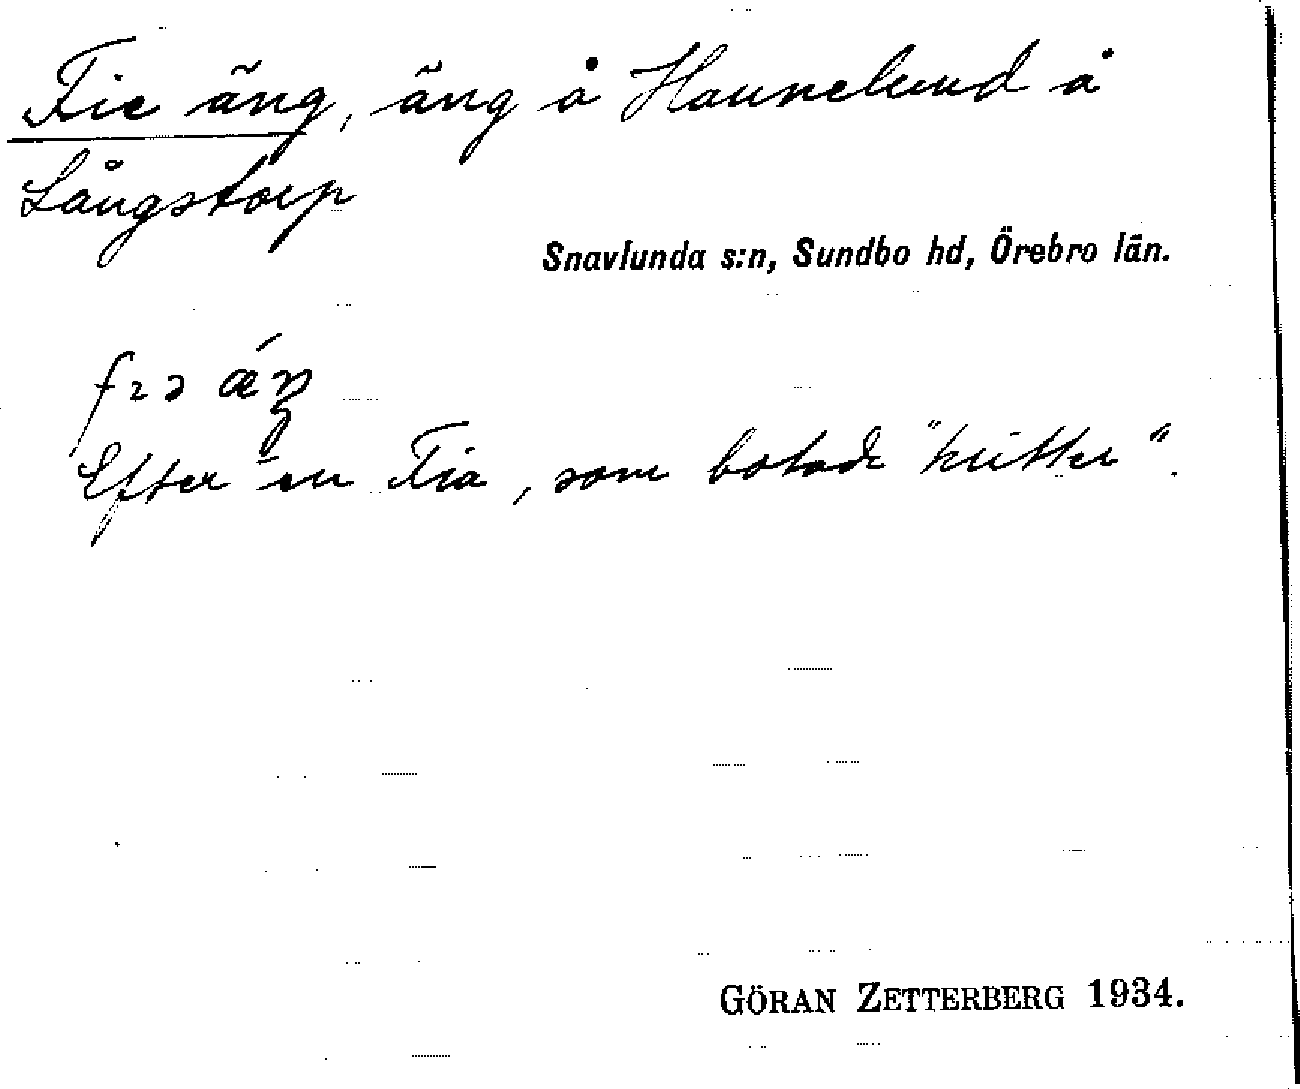 Fie äng, äng å Hannelund å
Långstorp
Snavlunda s:n, Sundbo hd, Örebro län.
Efter en Fia, som botade
GÖRAN ZETTERBERG 1934.